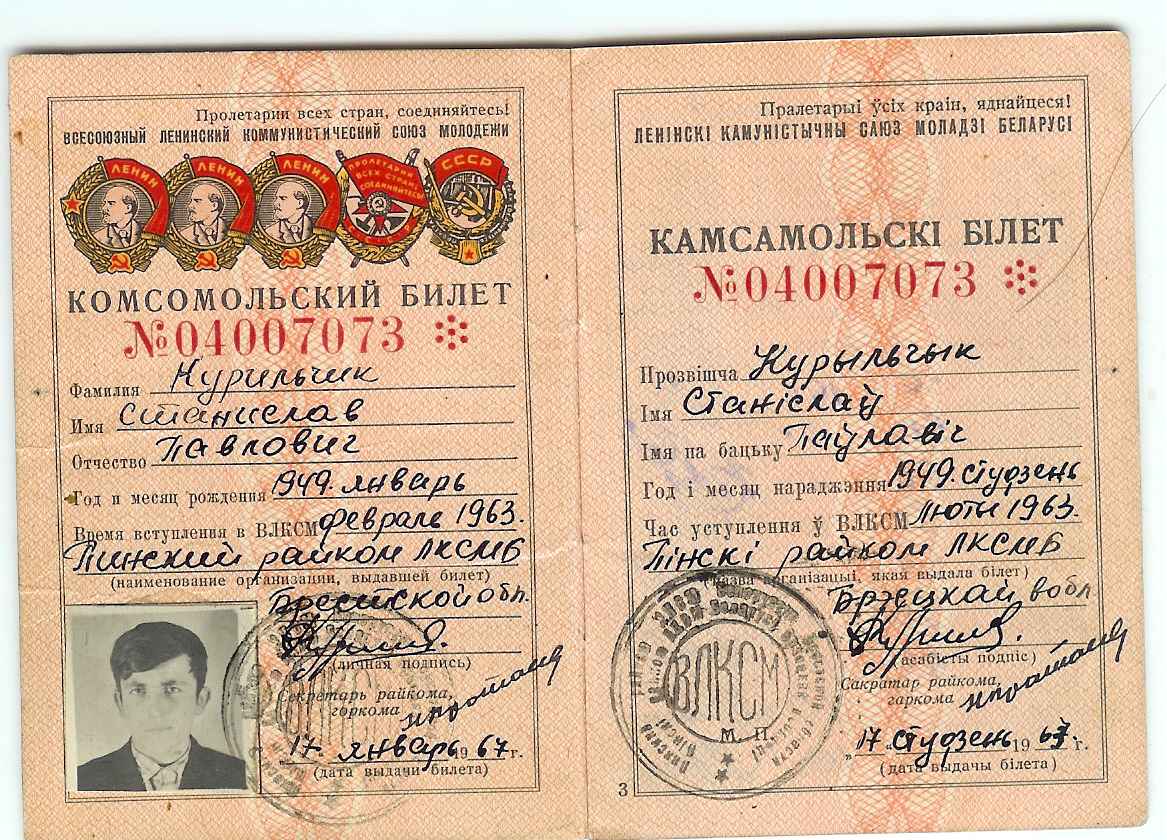 Пролетарии всех стран, соединяйтесь!
ВСЕСОЮЗНЫЙ ЛЕНИНСКИЙ КОММУНИСТИЧЕСКИЙ СОЮЗ МОЛОДЕЖИ
ЛЕНИН
ЛЕНИН
ЛЕНИН
ПРОЛЕТАРИИ ВСЕХ СТРАН, СОЕДИНЯЙТЕСЬ
СССР
КОМСОМОЛЬСКИЙ БИЛЕТ
№04007073
Фамилия Курильчик
Имя Станислав
Отчество Павлович
Год и месяц рождения 1949. январь
Время вступления в ВЛКСМ февраль 1963.
Пинский райком ЛКСМБ
(наименование организации, выдавшей билет)
Брестской обл.
(личная подпись)
Секретарь райкома,
горкома
"17" январь 1967 г.
(дата выдачи билета)
Пралетарыі ўсіх краін, яднайцеся!
ЛЕНІНСКІ КАМУНІСТЫЧНЫ САЮЗ МОЛАДЗІ БЕЛАРУСІ
КАМСАМОЛЬСКІ БІЛЕТ
№04007073
Прозвішча Курыльчык
Імя Станіслаў
Імя па бацьку Паўлавіч
Год і месяц нараджэння 1949. студзень
Час уступлення ў ВЛКСМ люты 1963.
Пінскі райком ЛКСМБ
(назва арганізацыі, якая выдала білет)
Брэсцкай вобл
(асабісты подпіс)
Сакратар райкома,
гаркома
ВЛКСМ
М. П.
"17" студзень 1967 г.
(дата выдачы білета)
3